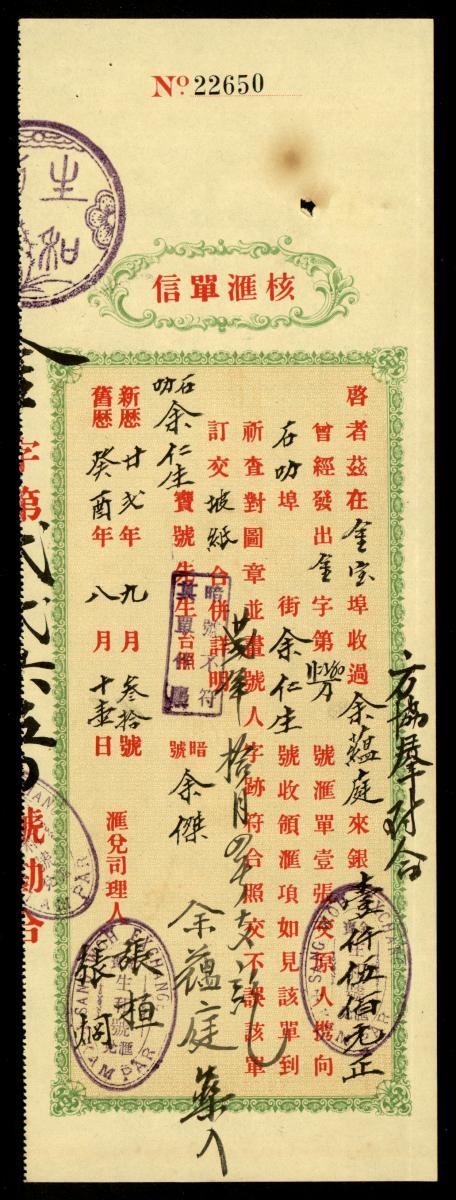 No. 22650
生和
核滙單信
啓者茲在金宝埠收過余蘊庭來銀壹仟伍佰元正
曾經發出金字第 號滙單壹張交原人携向
石叻埠 街余仁生號收領滙項如見該單到
祈查對圖章並畫號人字跡符合照交不誤該單
訂交坡紙合併詳明
石叻余仁生寶號先生台照
新歷廿弍年九月叁拾號
舊歷癸酉年八月十壹日
暗號余傑
滙兌司理人
張桓
張炯
暗號不符
其單作廢
余蘊庭
方協羣对合
金字第弍弍六五〇號勘合
SANG WOH EXCHANGE
KAMPAR
生和號滙兌
SANG WOH EXCHANGE
KAMPAR